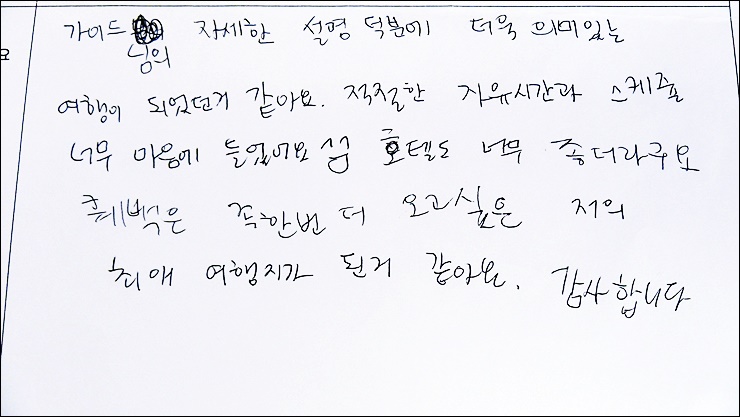 가이드님의 자세한 설명 덕분에 더욱 의미있는
여행이 되었던거 같아요. 적절한 자유시간과 스케줄
너무 마음에 들었어요 호텔도 너무 좋더라구요
푸꾸옥은 꼭한번 더 오고싶은 저의
최애 여행지가 된거 같아요. 감사합니다